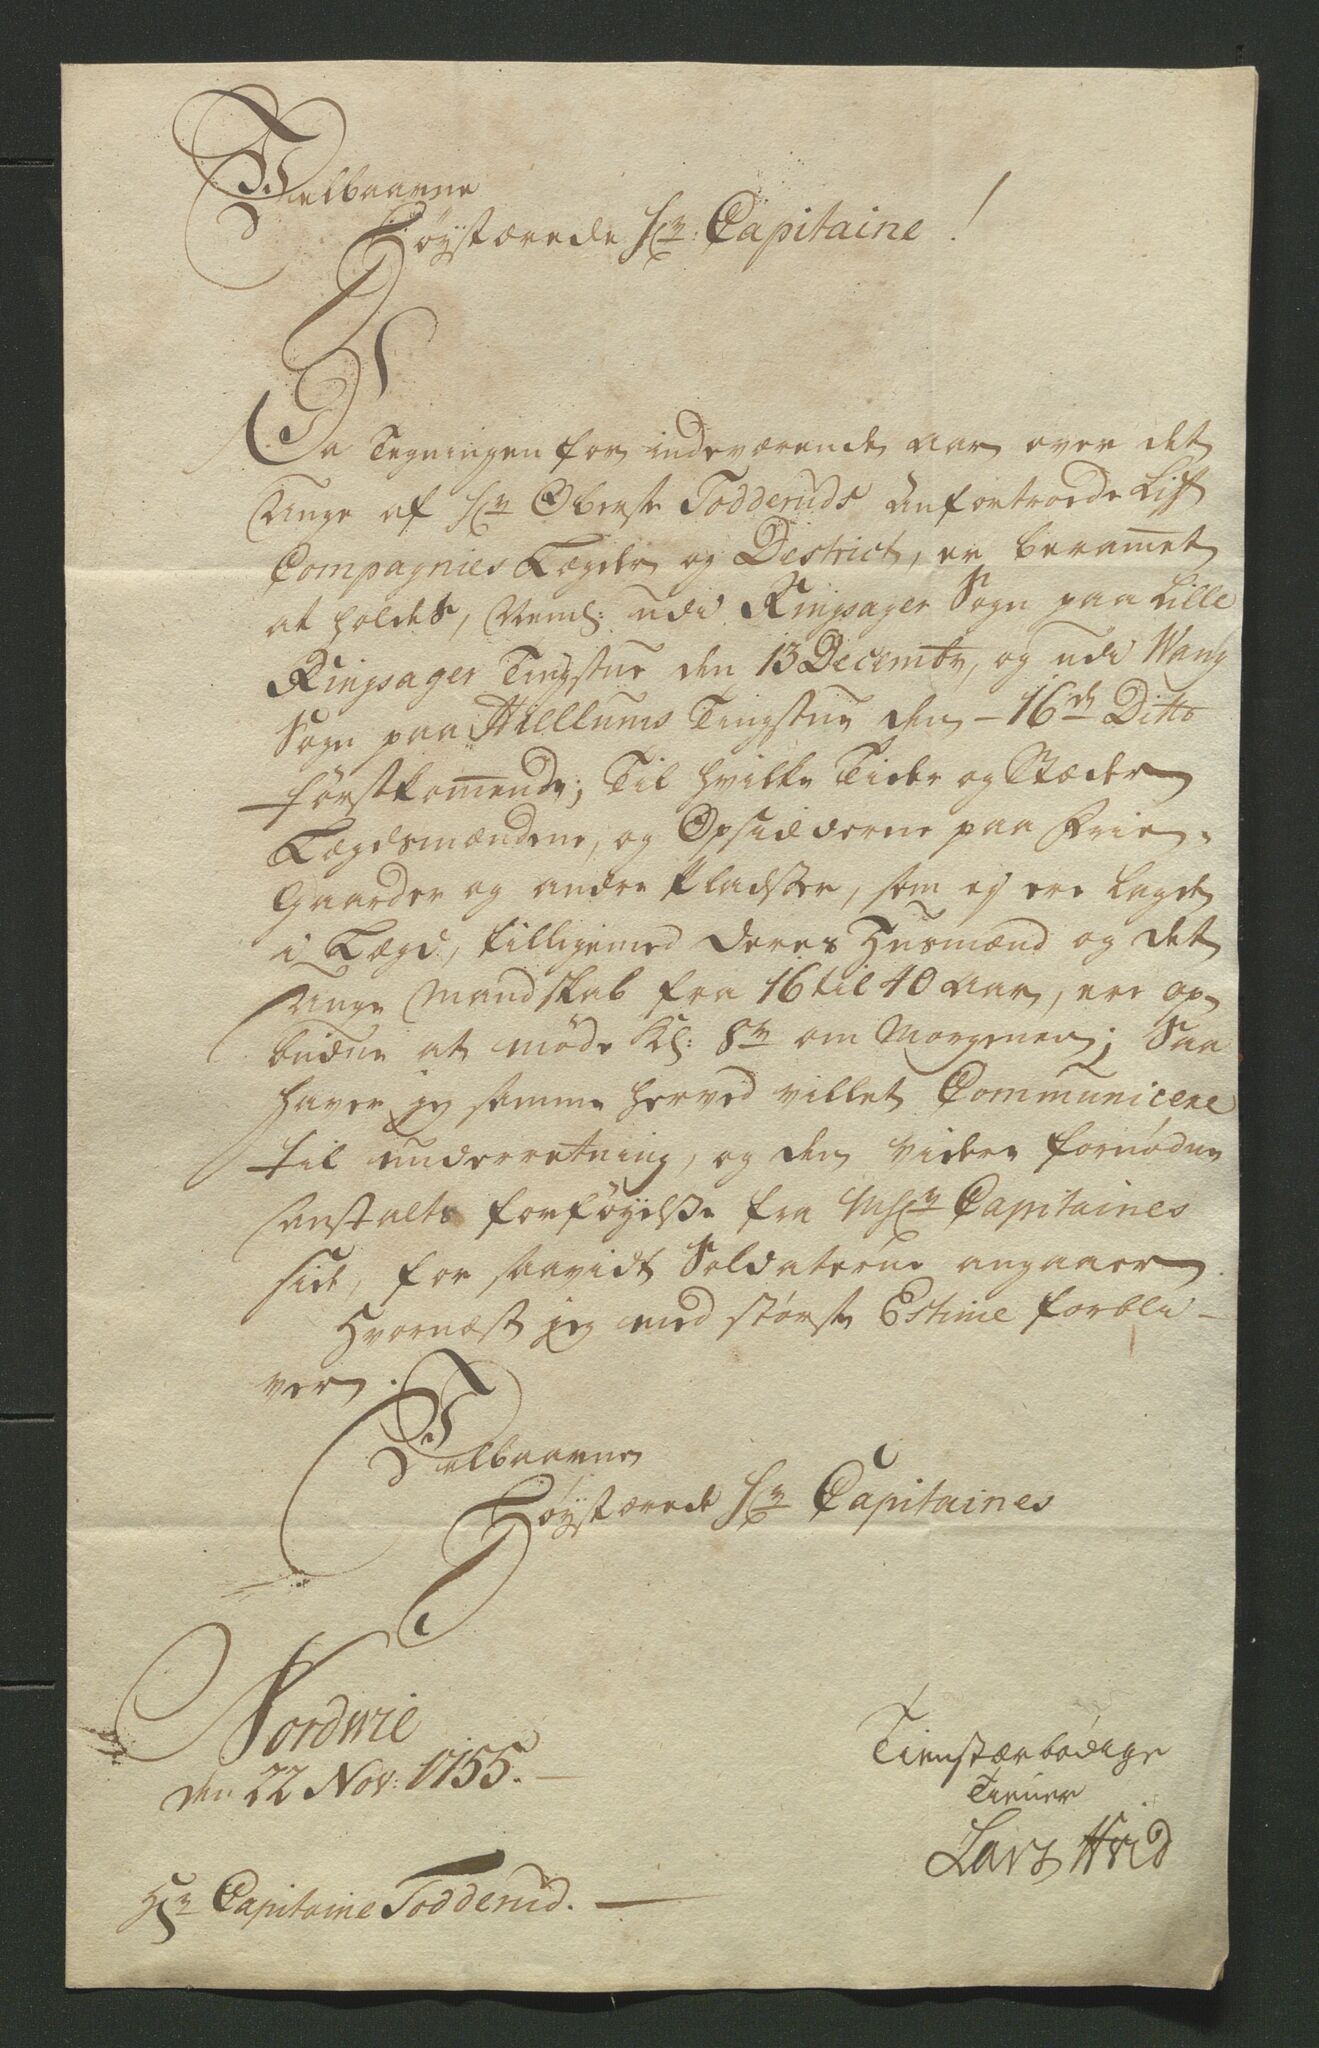 Velbaarne
Høystærede Hr: Capitaine!
Da Tegningen for indeværende aar over det
Unge af Hr Oberste Todderuds anfortroede Lif
Compagnies Lægder og Destrict, er beram̄et
at holdes, Neml: udi Ringsager Sogn paa Lille
Ringsager Tingstue den 13 Decembr, og udi Wang
Sogn paa Hiellums Tingstue den 16de Ditto
førstkom̄ende; Til hvilke Tider og Stæder
Lægdsmændene, og Opsidderne paa Frie-
Gaarder og andre Pladser, som ej ere lagde
i Lægd, tilligemed deres Husmænd og det
Unge Mandskab fra 16 til 40 aar, ere op-
budne at møde Kl: 8te om Morgenen; Saa
haver jeg samme herved villet Communicere
til underretning, og den videre fornødne
anstalts forføyelse fra Hr Capitaines
side, for saavidt Soldaterne angaaer.
Hvornæst jeg med største Estime forbli-
ver.
Velbaarne
Høystærede Hr Capitaines
Nordvie
den 22 Nov: 1755.
Tienstærbødige
Tiener
Lars Hvid
Hr Capitaine Todderud.